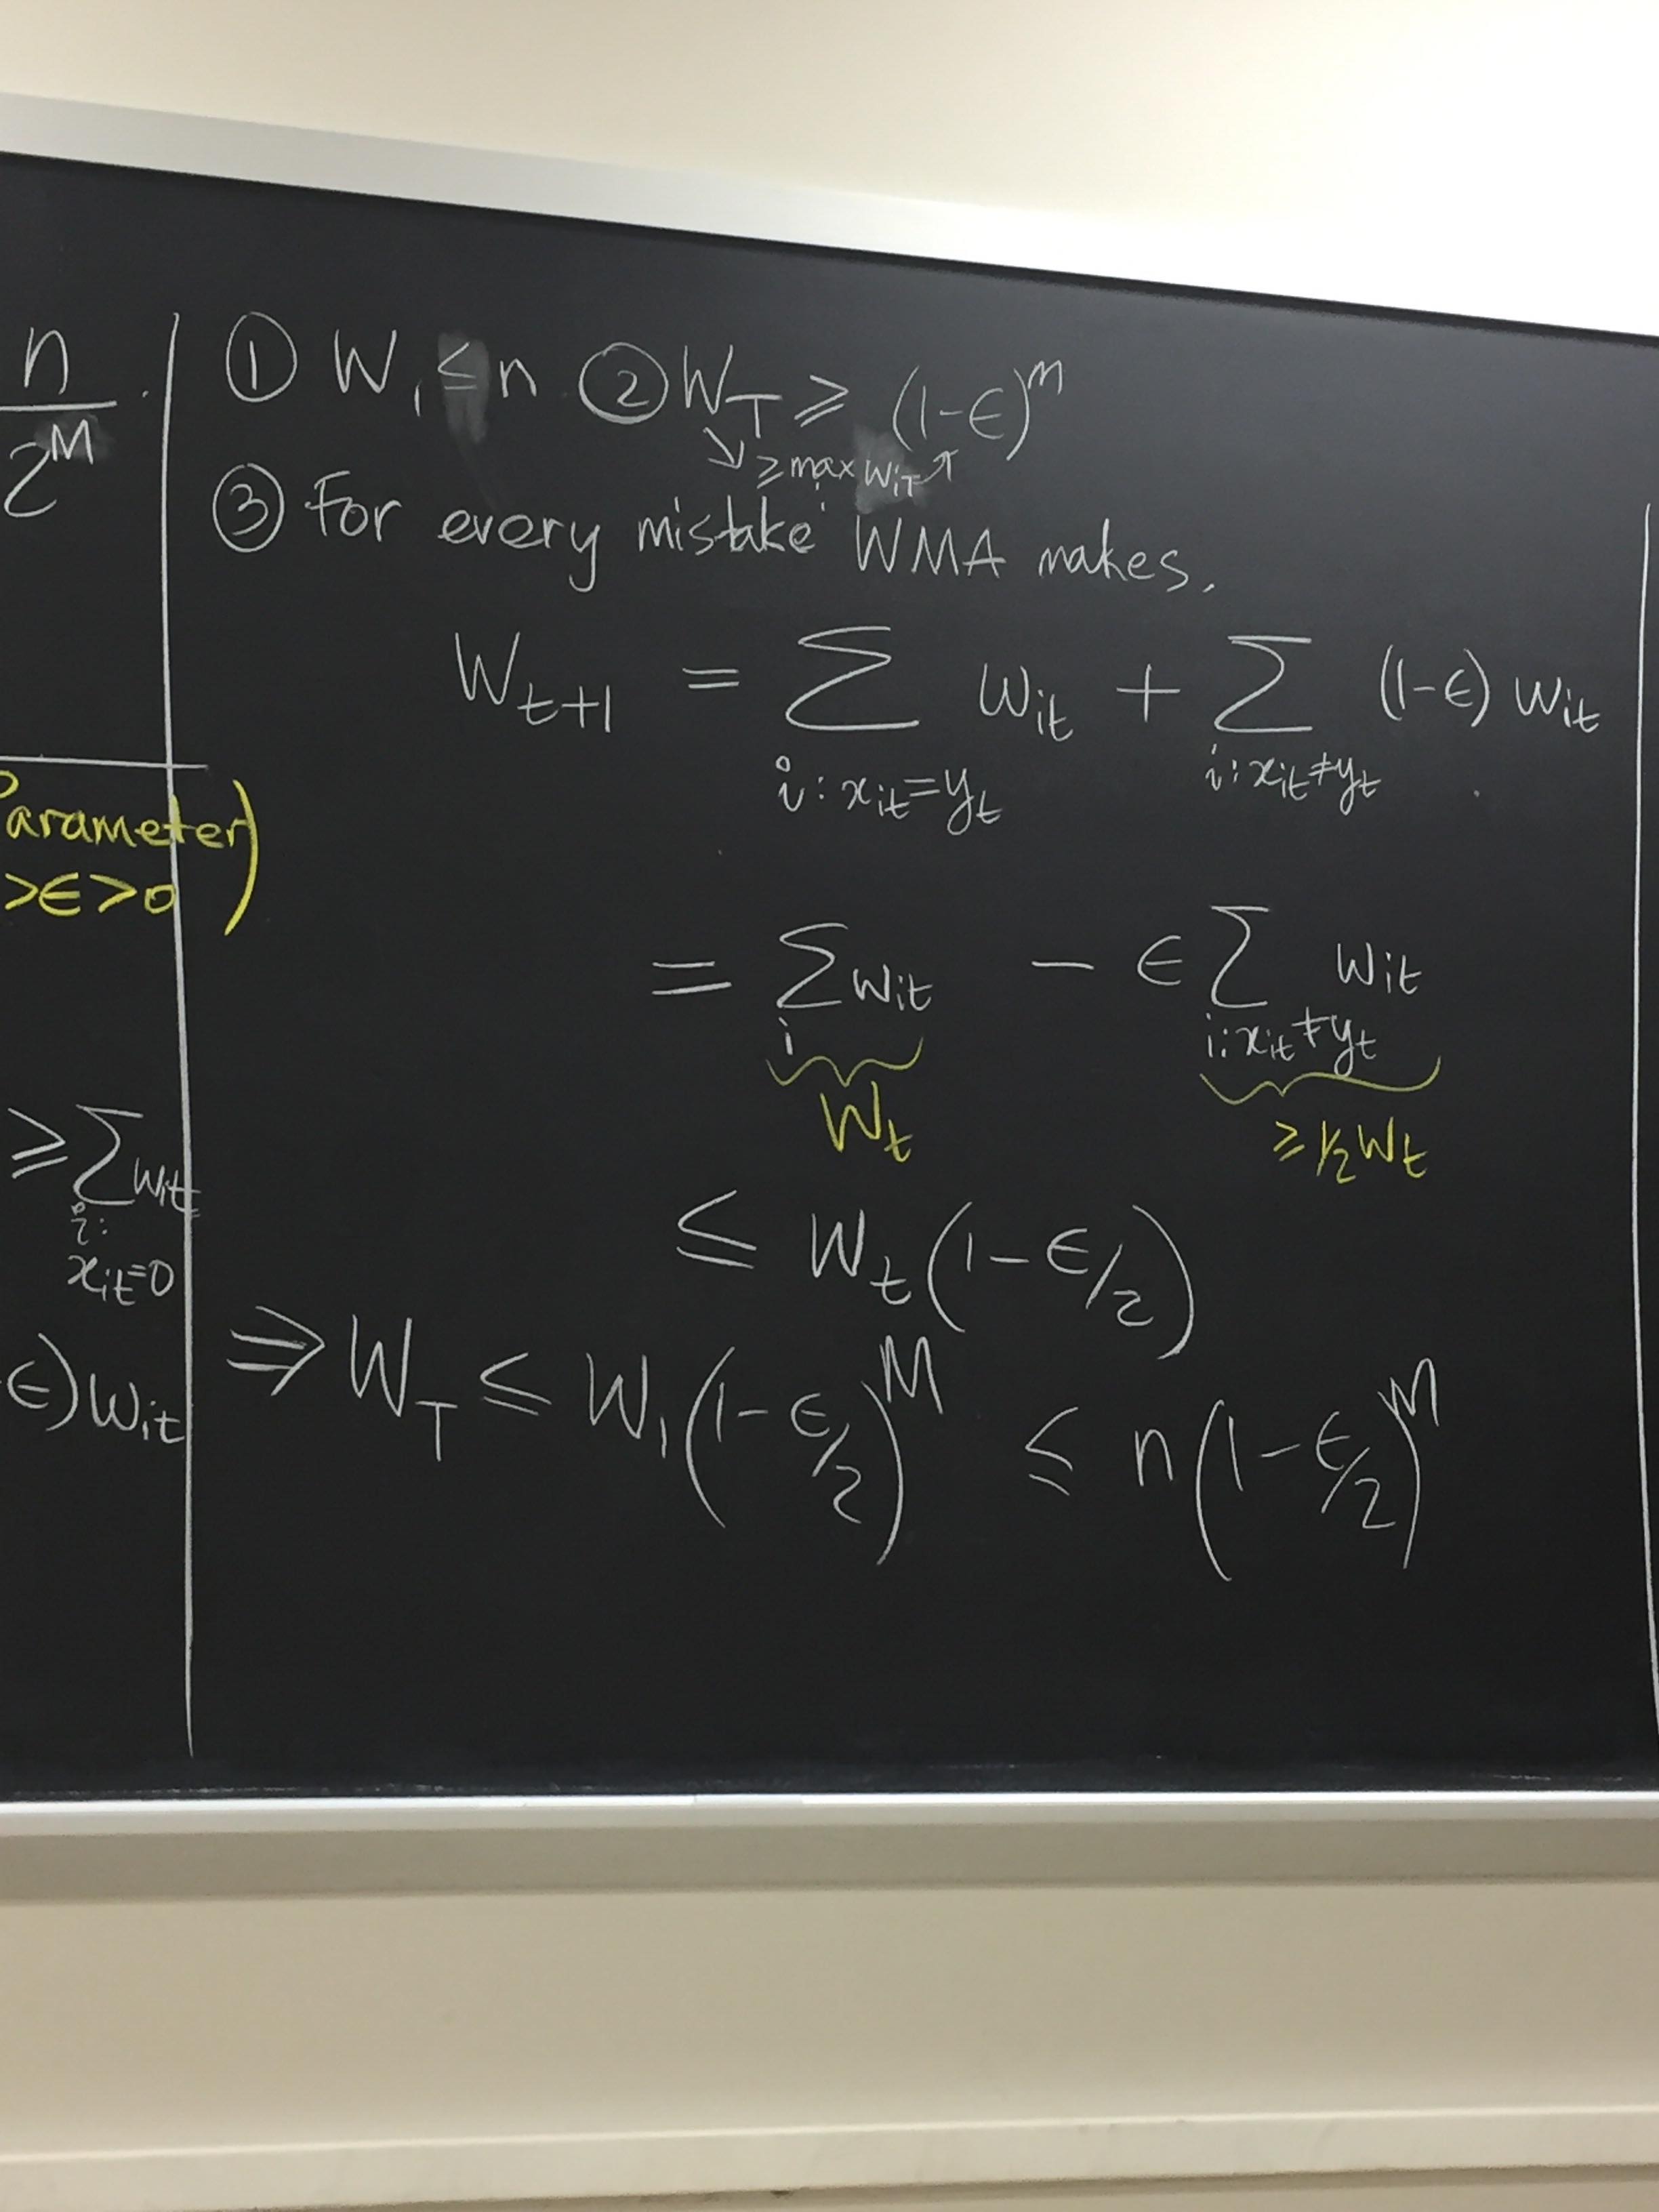 n
2^M
Parameter)
>ϵ>0
≥∑wit
i:
xit=0
ϵ)wit
① W1 ≤ n ② WT ≥ (1-ϵ)^m
≥ max wiT
i
③ For every mistake WMA makes,
Wt+1 = ∑ wit + ∑ (1-ϵ) wit
i: xit=yt i: xit≠yt
= ∑wit - ϵ∑ wit
i i: xit≠yt
Wt ≥ 1/2 Wt
≤ Wt(1-ϵ/2)
⇒ WT ≤ W1(1-ϵ/2)^M ≤ n(1-ϵ/2)^M